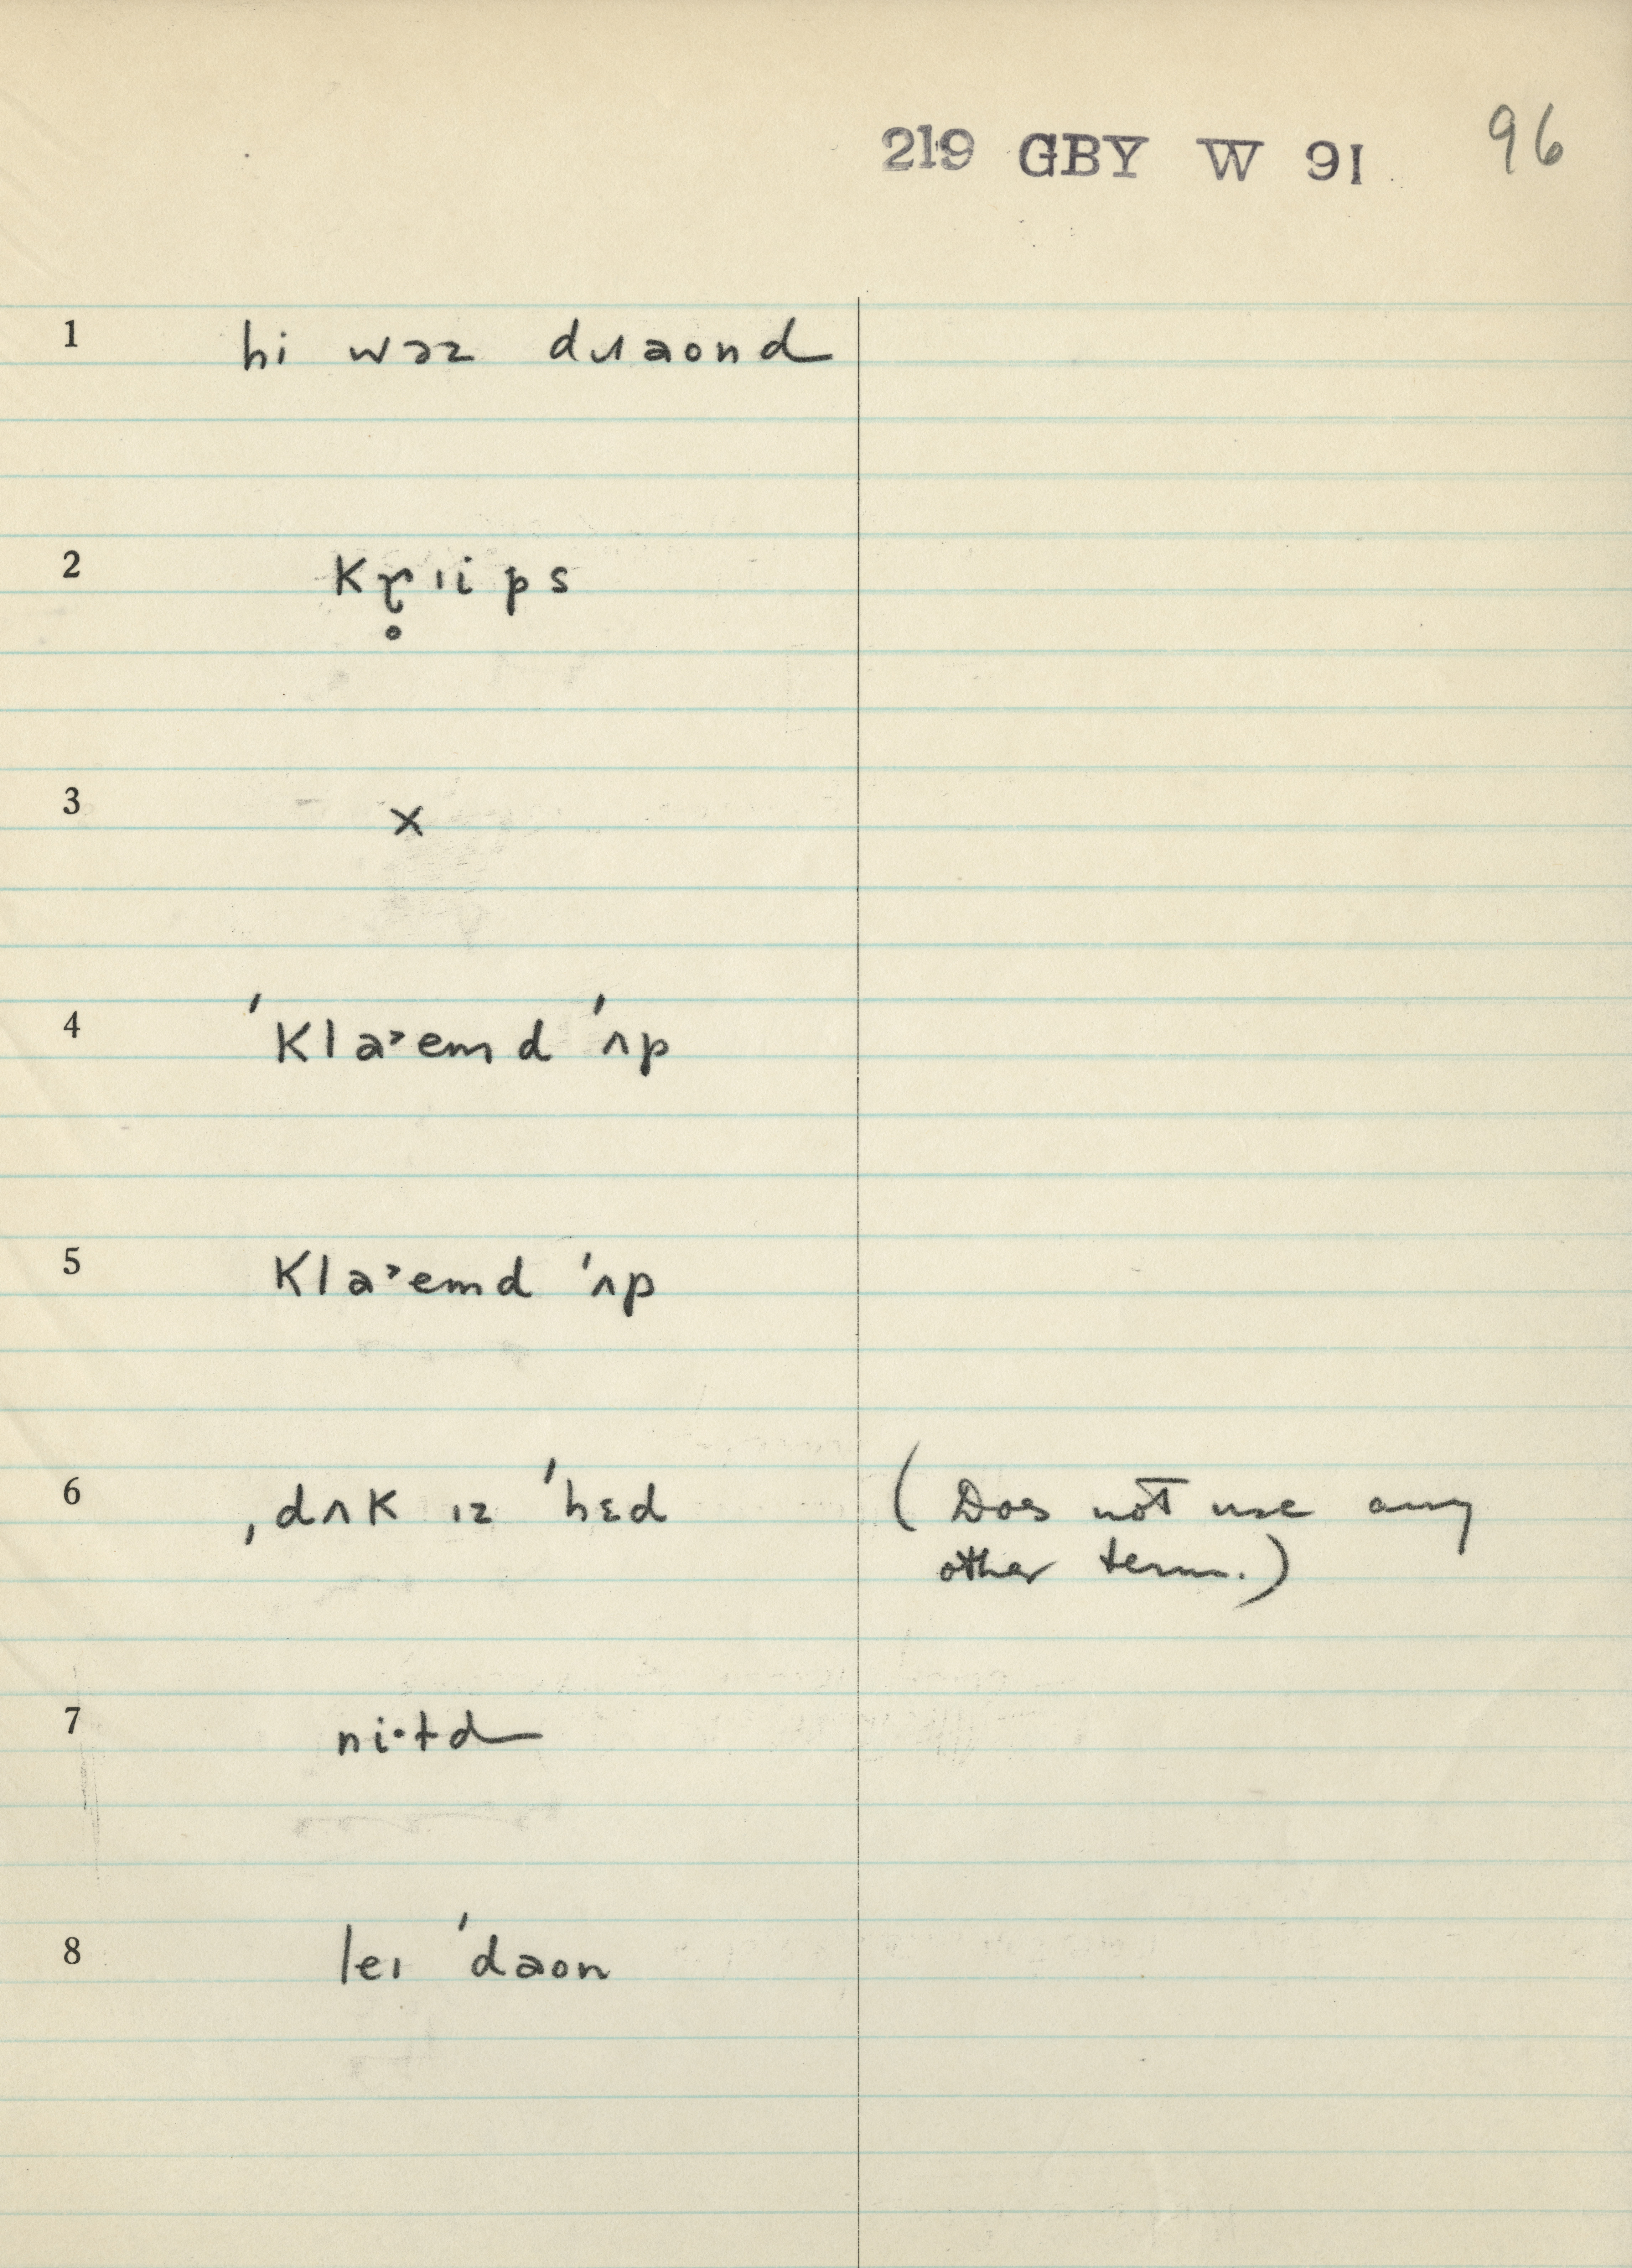 219 GBY W 91 96
1 hi wəz dɹaond
2 kɽ̥ɪips
3 x
4 ˈklaˑemd ˈʌp
5 klaˑemd ˈʌp
6 ˌdʌk ɪz ˈhɛd (Does not use any
other term.)
7 niˑtd
8 leɪ ˈdaon